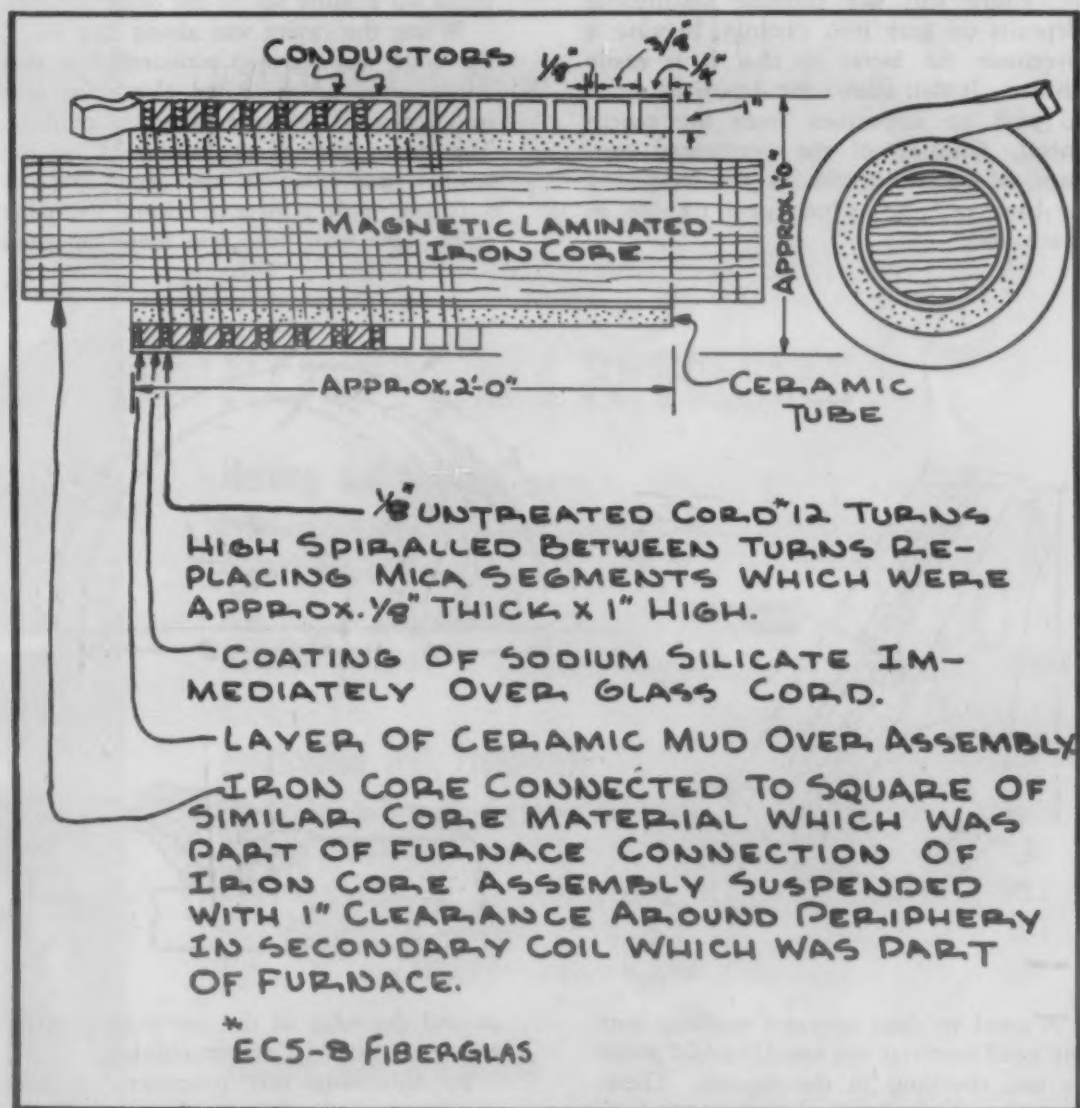 CONDUCTORS
1/8"
3/8"
1/4"
1"
MAGNETIC LAMINATED
IRON CORE
APPROX. 1'-0"
APPROX 2'-0"
CERAMIC
TUBE
1/8" UNTREATED CORD* 12 TURNS
HIGH SPIRALLED BETWEEN TURNS RE-
PLACING MICA SEGMENTS WHICH WERE
APPROX. 1/8" THICK X 1" HIGH.
COATING OF SODIUM SILICATE IM-
MEDIATELY OVER GLASS CORD.
LAYER OF CERAMIC MUD OVER ASSEMBLY
IRON CORE CONNECTED TO SQUARE OF
SIMILAR CORE MATERIAL WHICH WAS
PART OF FURNACE CONNECTION OF
IRON CORE ASSEMBLY SUSPENDED
WITH 1" CLEARANCE AROUND PERIPHERY
IN SECONDARY COIL WHICH WAS PART
OF FURNACE.
*
EC5-8 FIBERGLAS